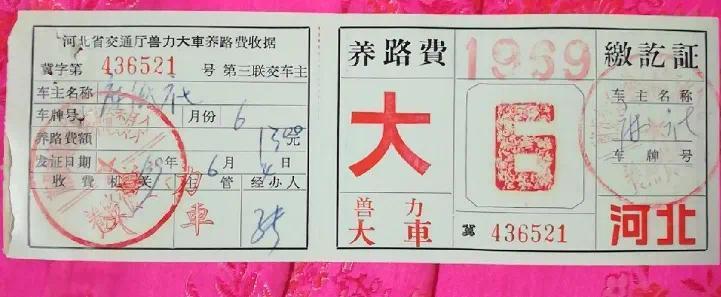 河北省交通厅兽力大車养路费收据
冀字第 436521 号 第三联交车主
车主名称
车牌号 月份 6
养路费額 元
发证日期 69年 6月 4日
收费机关 主管 经办人
力
車
养路費
大
兽力
大車
1969
6
冀 436521
繳訖証
车主名称
车牌号
河北